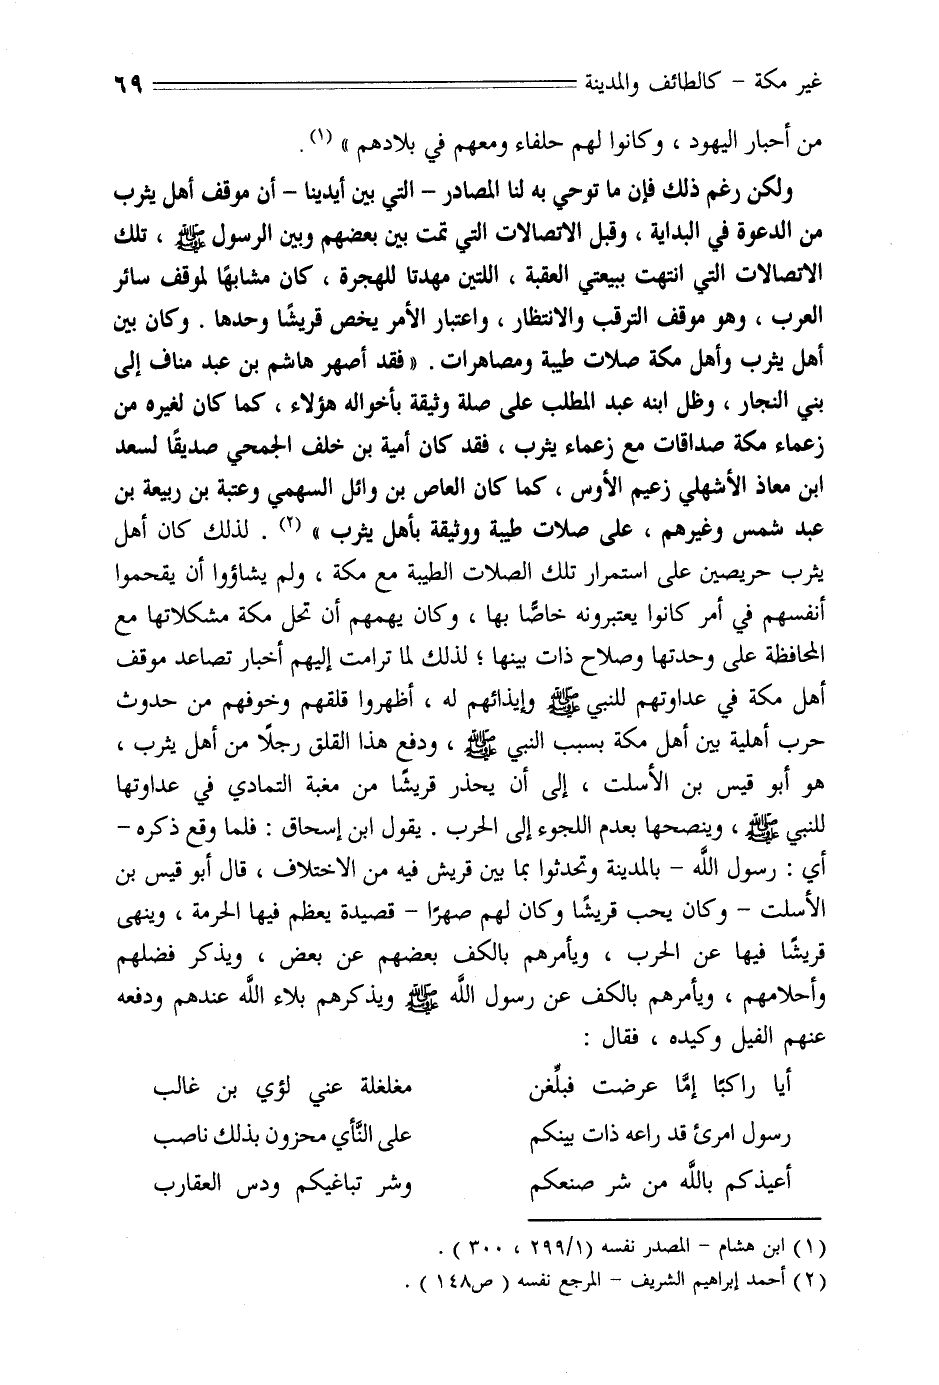 غير مكة – كالطائف والمدينة ٦٩
من أحبار اليهود ، وكانوا لهم حلفاء ومعهم في بلادهم » (١) .
ولكن رغم ذلك فإن ما توحي به لنا المصادر – التي بين أيدينا – أن موقف أهل يثرب
من الدعوة في البداية ، وقبل الاتصالات التي تمت بين بعضهم وبين الرسول ﷺ ، تلك
الاتصالات التي انتهت ببيعتي العقبة ، اللتين مهدتا للهجرة ، كان مشابهًا لموقف سائر
العرب ، وهو موقف الترقب والانتظار ، واعتبار الأمر يخص قريشًا وحدها . وكان بين
أهل يثرب وأهل مكة صلات طيبة ومصاهرات . « فقد أصهر هاشم بن عبد مناف إلى
بني النجار ، وظل ابنه عبد المطلب على صلة وثيقة بأخواله هؤلاء ، كما كان لغيره من
زعماء مكة صداقات مع زعماء يثرب ، فقد كان أمية بن خلف الجمحي صديقًا لسعد
ابن معاذ الأشهلي زعيم الأوس ، كما كان العاص بن وائل السهمي وعتبة بن ربيعة بن
عبد شمس وغيرهم ، على صلات طيبة ووثيقة بأهل يثرب » (٢) . لذلك كان أهل
يثرب حريصين على استمرار تلك الصلات الطيبة مع مكة ، ولم يشاؤوا أن يقحموا
أنفسهم في أمر كانوا يعتبرونه خاصًّا بها ، وكان يهمهم أن تحل مكة مشكلاتها مع
المحافظة على وحدتها وصلاح ذات بينها ؛ لذلك لما ترامت إليهم أخبار تصاعد موقف
أهل مكة في عداوتهم للنبي ﷺ وإيذائهم له ، أظهروا قلقهم وخوفهم من حدوث
حرب أهلية بين أهل مكة بسبب النبي ﷺ ، ودفع هذا القلق رجلًا من أهل يثرب ،
هو أبو قيس بن الأسلت ، إلى أن يحذر قريشًا من مغبة التمادي في عداوتها
للنبي ﷺ ، وينصحها بعدم اللجوء إلى الحرب . يقول ابن إسحاق : فلما وقع ذكره –
أي : رسول اللَّه – بالمدينة وتحدثوا بما بين قريش فيه من الاختلاف ، قال أبو قيس بن
الأسلت – وكان يحب قريشًا وكان لهم صهرًا – قصيدة يعظم فيها الحرمة ، وينهى
قريشًا فيها عن الحرب ، ويأمرهم بالكف بعضهم عن بعض ، ويذكر فضلهم
وأحلامهم ، ويأمرهم بالكف عن رسول اللَّه ﷺ ويذكرهم بلاء اللَّه عندهم ودفعه
عنهم الفيل وكيده ، فقال :
أيا راكبًا إمَّا عرضت فبلِّغن مغلغلة عني لؤي بن غالب
رسول امرئ قد راعه ذات بينكم على النَّأي محزون بذلك ناصب
أعيذكم باللَّه من شر صنعكم وشر تباغيكم ودس العقارب
(١) ابن هشام – المصدر نفسه (٢٩٩/١ ، ٣٠٠ ) .
(٢) أحمد إبراهيم الشريف – المرجع نفسه ( ص١٤٨ ) .